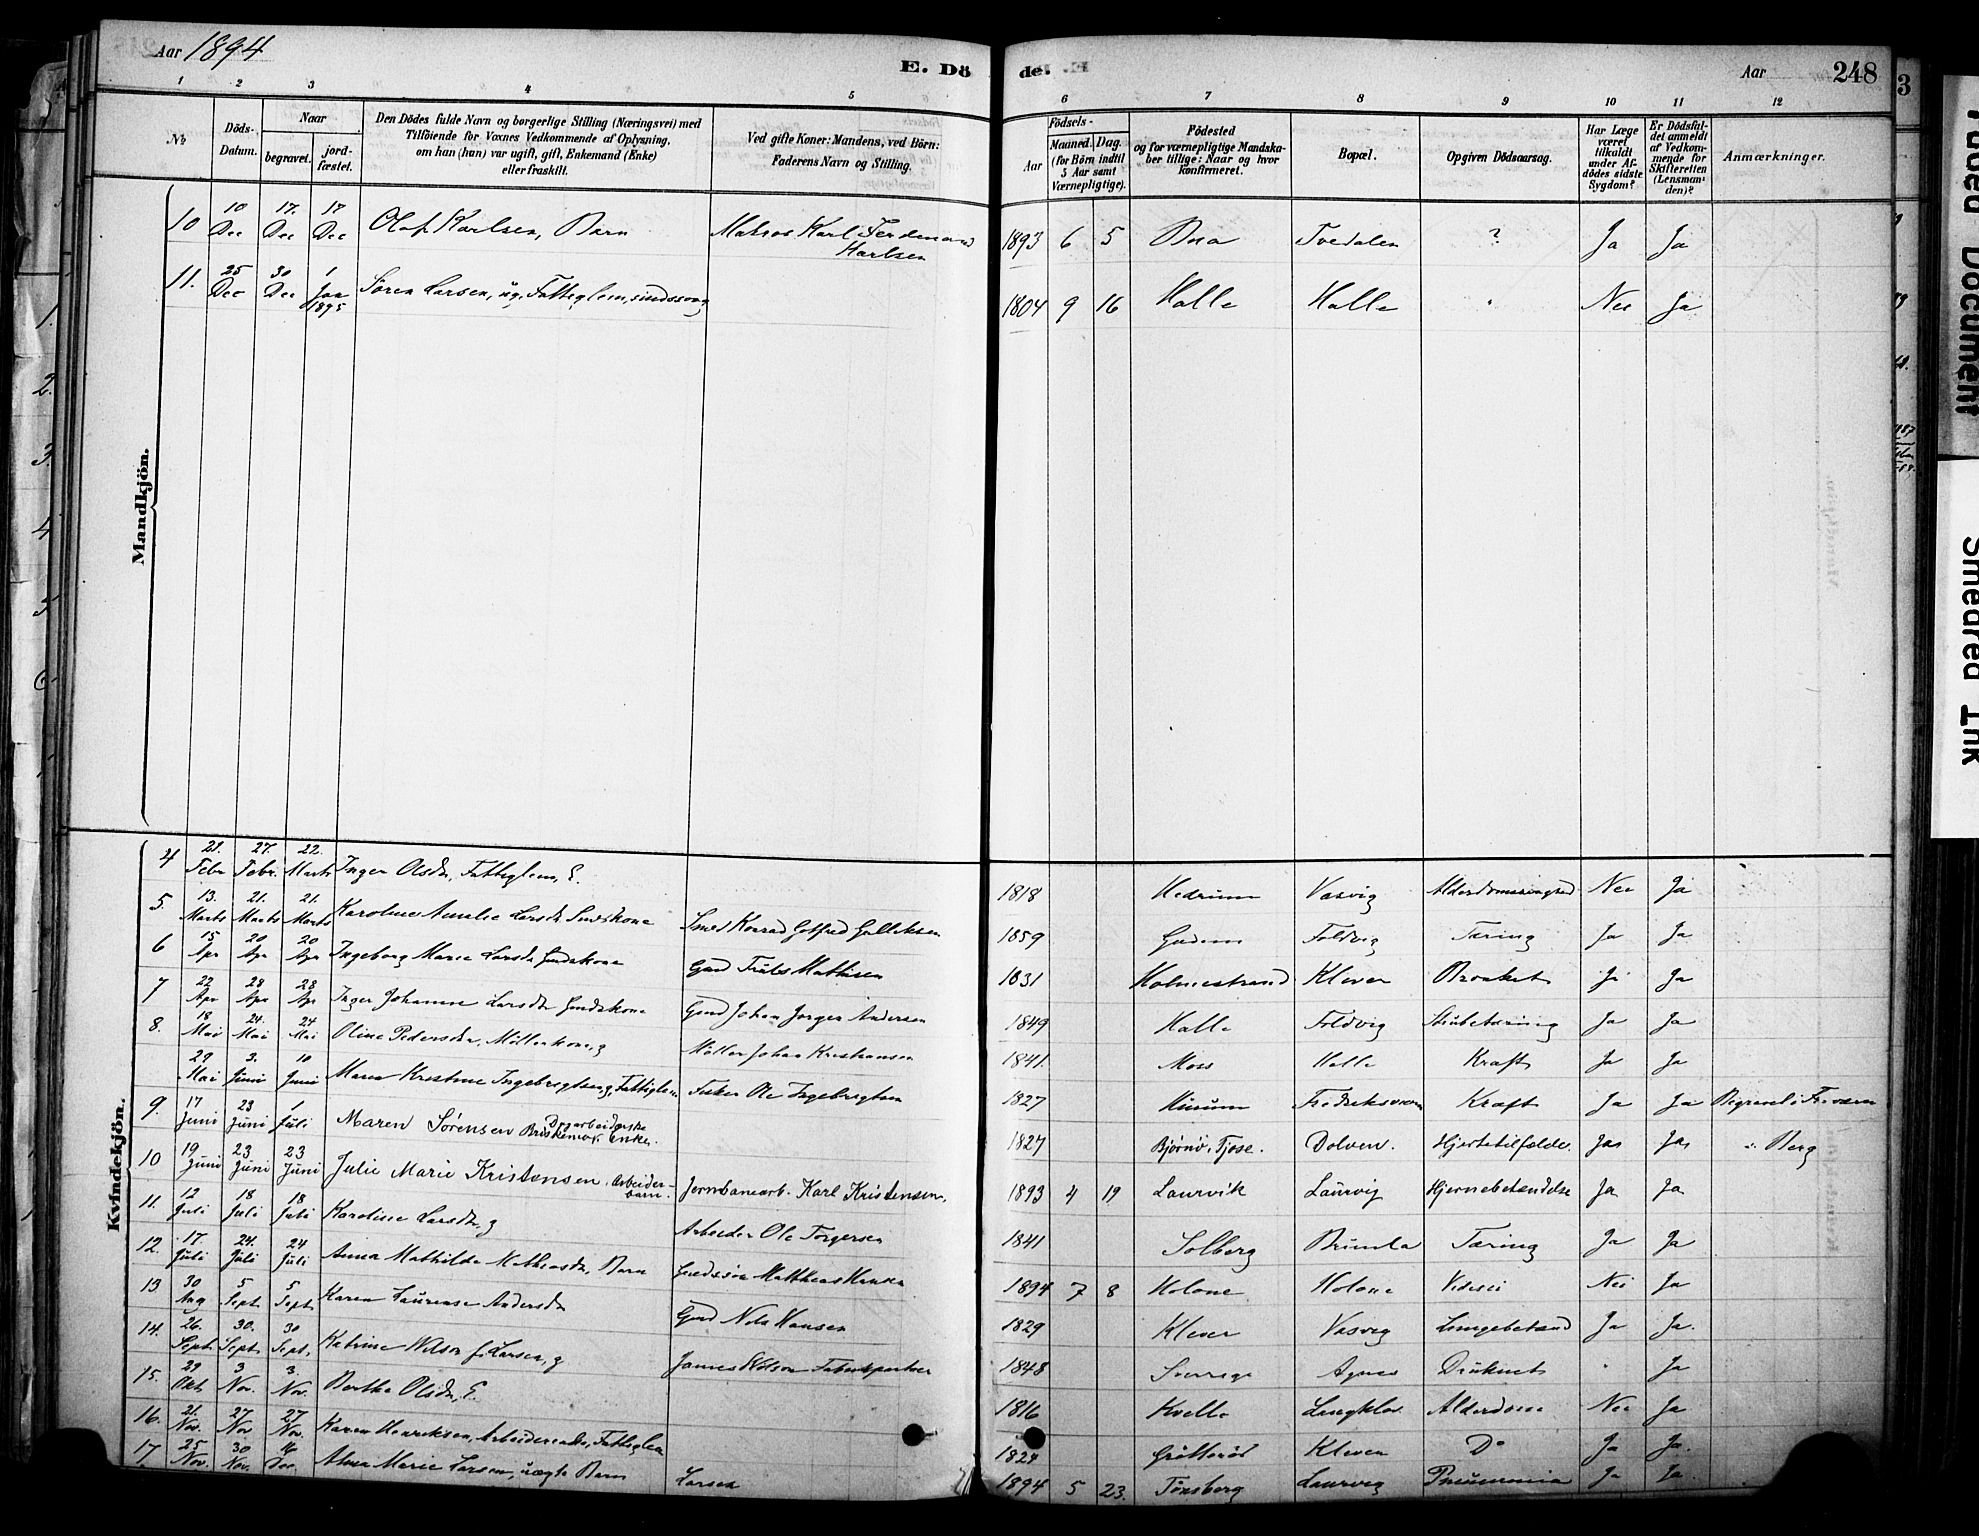 Aar 1894
E. Dö
de. E.
Aar
248
1 2 3 4 5 6 7 8 9 10 11 12
№
Döds-Datum.
Naar
begravet.
jordfæstet.
Den Dödes fulde Navn og borgerlige Stilling (Næringsvei) med
Tilföiende for Voxnes Vedkommende af Oplysning,
om han (hun) var ugift, gift, Enkemand (Enke)
eller fraskilt.
Ved gifte Koner: Mandens, ved Börn:
Faderens Navn og Stilling.
Födsels-
Aar
Maaned.
Dag.
(for Börn indtil
5 Aar samt
Værnepligtige).
Födested
og for værnepligtige Mandska-
ber tillige: Naar og hvor
konfirmeret.
Bopæl.
Opgiven Dödsaarsag.
Har Læge
været
tilkaldt
under Af-
dødes sidste
Sygdom?
Er Dödsfal-
det anmeldt
af Vedkom-
mende for
Skifteretten
(Lensman-
den)?
Anmærkninger.
Mandkjön.
10 10 Dec 17. Dec 17 Dec Olaf Karlsen, Barn Matros Karl Ferdinand Karlsen 1893 6 5 Tvedalen ? Ja Ja
11. 25 Dec 30 Dec 1 Jan 1895 Søren Larsen, ug. Fattiglem, 1804 9 16 Halle Halle " Nei Ja
Kvindekjön.
4 21. Febr 27. Febr. 22. Marts Inger Olsdr, Fattiglem, E. 1818 Hedrum Vasvig Nei Ja
5. 13. Marts 21. Marts 21. Marts Karoline Amalie Larsdr Smedkone Smed Konrad Gotfred Gulliksen 1859 Foldvig Tæring Ja Ja
6 15 Apr 20 Apr 20 Apr Ingeborg Marie Larsdr Gmdskone Gmd Mathisen 1831 Holmestrand Kleven Ja Ja
7 22 Apr 28 Apr 28 Apr Inger Johanne Larsdr Gmdskone Gmd Johan Jørgen Andersen 1849 Halle Foldvig Strubetæring Ja Ja
8. 18 Mai 24. Mai 24 Mai Oline Pedersdr, Møllerkone, g Møller Johan Kristiansen 1841. Moss Halle Kræft Ja Ja
29 Mai 3. Juni 10 Juni Maren Kristine Ingebrigtsen g, Fattiglem Fisker Ole Ingebrigtsen 1827 Fredriksværn Kræft Ja Ja Begravet i Fr.værn
9. 17 Juni 23 Juni 1 Juli Maren Sørensen enke. 1827 Bjørnø, Tjose. Dolven. Hjertetilfælde. Ja Ja " Berg
10 19 Juni 23 Juni 23 Juni Julie Marie Kristensen, Arbeider-barn. Jernbanearb. Karl Kristensen. 1893 4 19 Laurvik Laurvig Hjernebetændelse Ja Ja
11. 12 Juli 18 Juli 18 Juli Karoline Larsdr, g Arbeider Ole Torgersen 1841 Solberg Brunla Tæring Ja Ja
12. 17. Juli 24. Juli 24 Juli Anna Mathilde Mathiasdr, Barn Matthias Hansen 1894 7 8 Holone Holone Nei Ja
13 30 Aug 5 Sept 5 Sept. Karen Laurense Andersdr Gmd Nils Hansen 1829 Klever Vasvig Lungebetænd Ja Ja.
14. 26. Sept 30. Sept. 30 Sept. Katrine Wilson f. Larsen, g James Wilson 1848 Sverige Agnes Druknet " Ja
15. 29 Okt 3 Nov. 3. Nov. Berthe Olsdr, E. 1816 Kvelle Alderdom Nei Ja
16. 21. Nov. 27 Nov 27 Nov. Karen Henriksen, Arbeiderenke, Fattiglem 1824 Kleven D° Ja Ja.
17 25 Nov. 30 Nov. 16 Dec. Alma Marie Larsen, uægte Barn Larsen 1894 5 23. Tønsberg Laurvig Pneumonia Ja Ja.
Faded Document
Smeared Ink